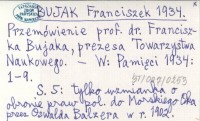 BUJAK Franciszek 1934.
Przemówienie prof. dr. Francisz-
ka Bujaka, prezesa Towarzystwa
Naukowego. – W: Pamięci 1934:
1-9.
S. 5: tylko wzmianka o
obronie praw pol. do Morskiego Oka
przez Oswalda Balzera w r. 1902.